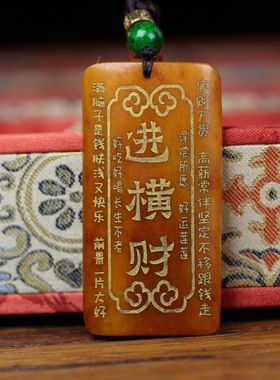 家财万贯 高薪常伴坚定不移跟钱走
得偿所愿 好运莲莲
进横财
好吃好喝长生不老
满脑子是钱肤浅又快乐 前景一片大好